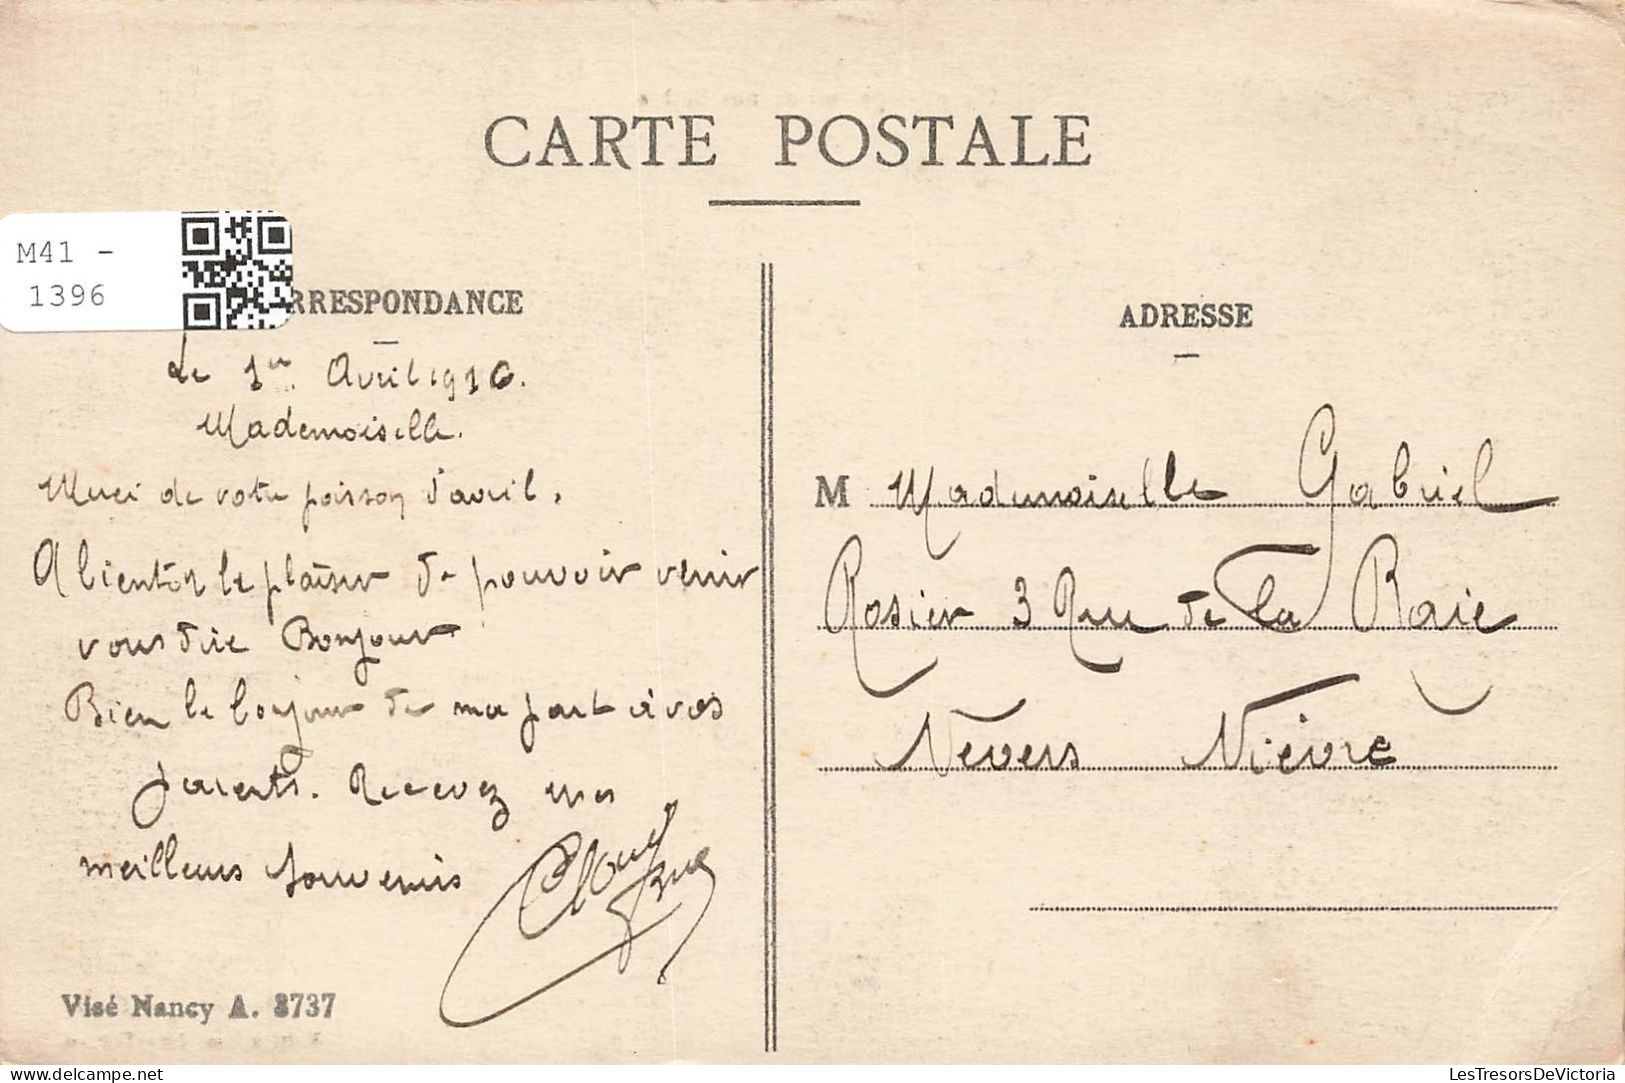 CARTE POSTALE
M41 -
1396
RRESPONDANCE
ADRESSE
Le 1er Avril 1916.
Mademoiselle.
Merci de votre poisson d'avril.
A bientôt le plaisir de pouvoir venir
vous dire Bonjour
Bien le bonjour de ma part à vos
parents. Recevez mes
meilleurs souvenirs
M Mademoiselle Gabriel
Rosier 3 Rue de La Raie
Nevers Nièvre
Visé Nancy A. 3737
LesTresorsDeVictoria